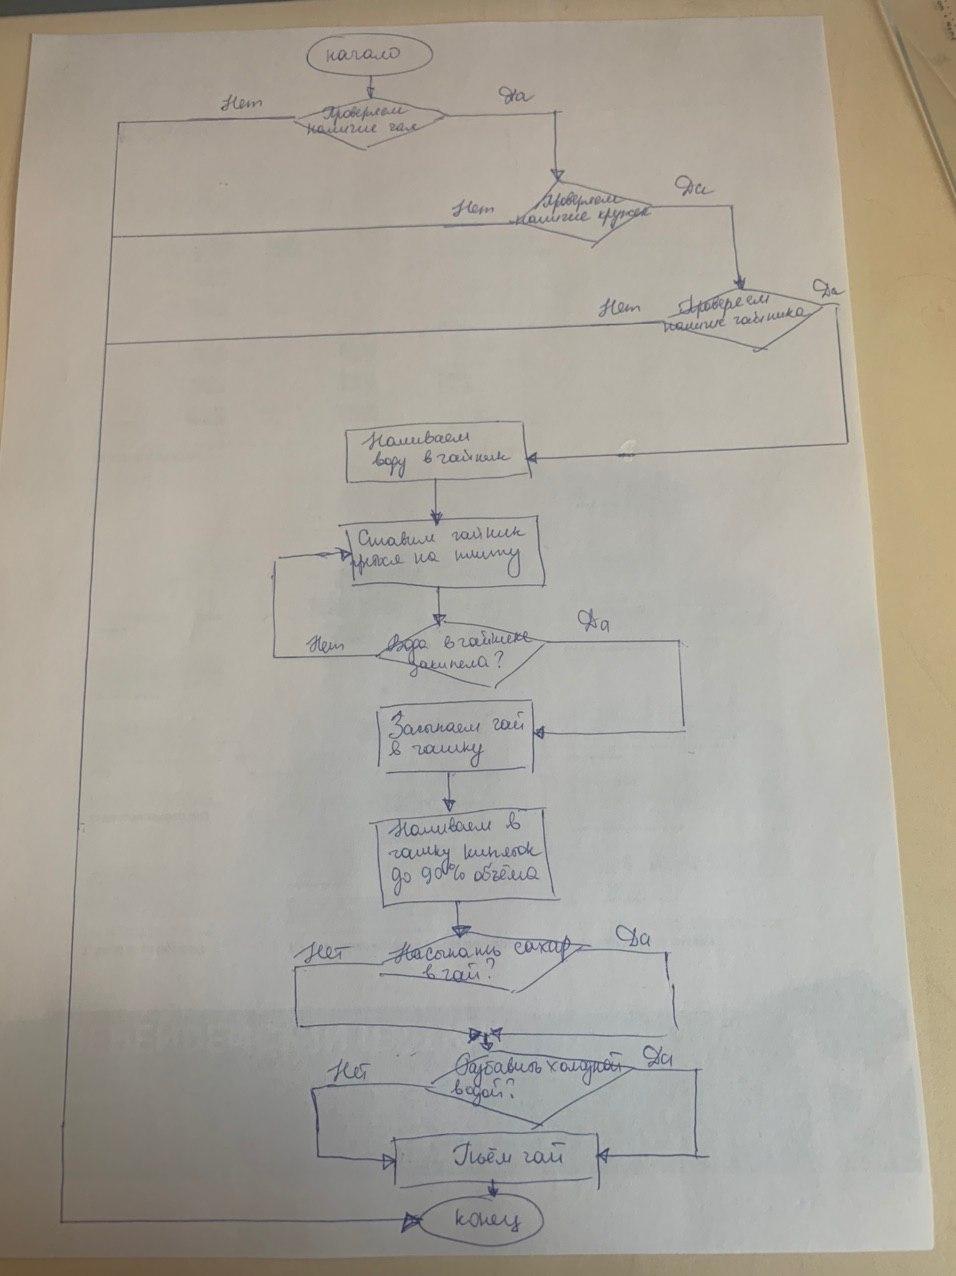 начало
Нет
Да
Проверяем
наличие чая
Нет
Да
Проверяем
наличие кружек
Нет
Да
Проверяем
наличие чайника
Наливаем
воду в чайник
Ставим чайник
на плиту
Нет
Да
Вода в чайнике
закипела?
Засыпаем чай
в чашку
Наливаем в
чашку кипяток
до 90% объёма
Нет
Да
Насыпать сахар
в чай?
Нет
Да
Разбавить холодной
водой?
Пьём чай
конец